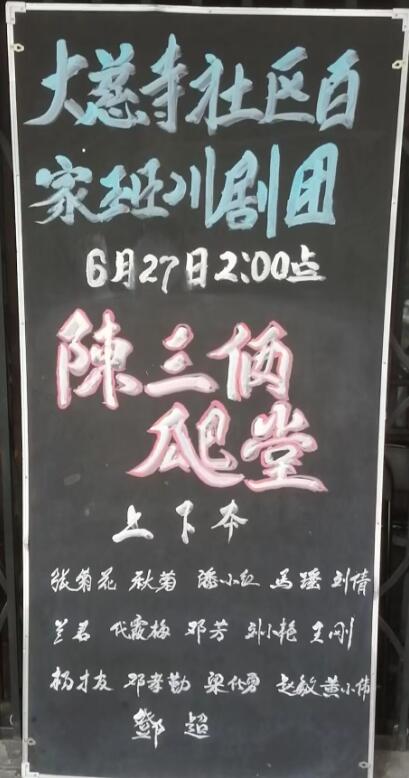 大慈寺社区百
家班川剧团
6月27日2:00点
陳三俩
爬堂
上下本
张菊花 秋菊 潘小红 马瑶 刘倩
兰君 代霞梅 邓芳 刘小艳 王刚
杨才友 邓孝勤 梁代勇 赵敏 黄小伟
鄧超